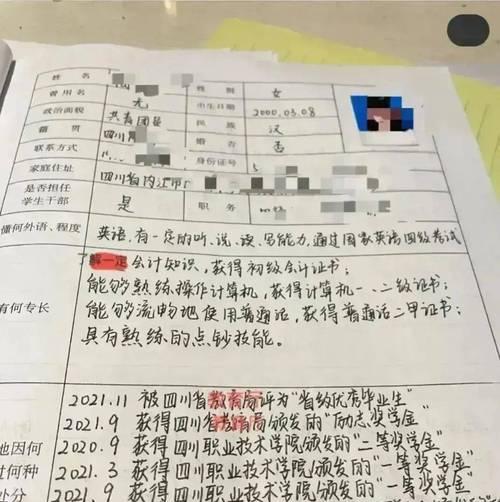 姓 名 性 别 女
曾用名 无 出生日期 2000.03.08
政治面貌 共青团员 民 族 汉
籍 贯 四川 婚 否 否
联系方式 身份证号
家庭住址 四川省内江市
是否担任学生干部 是 职 务
懂何外语、程度 英语,有一定的听、说、读、写能力,通过国家英语四级考试
了解一定会计知识,获得初级会计证书;
能够熟练操作计算机,获得计算机一、二级证书;
有何专长 能够流畅地使用普通话,获得普通话二甲证书;
具有熟练的点钞技能。
2021.11 被四川省教育局评为“省级优秀毕业生”
2021.9 获得四川省教育局颁发的“励志奖学金”
他因何 2020.9 获得四川职业技术学院颁发的“二等奖学金”
过何种 2021.3 获得四川职业技术学院颁发的“一等奖学金”
处分 2021.9 获得四川职业技术学院颁发的“一等奖学金”